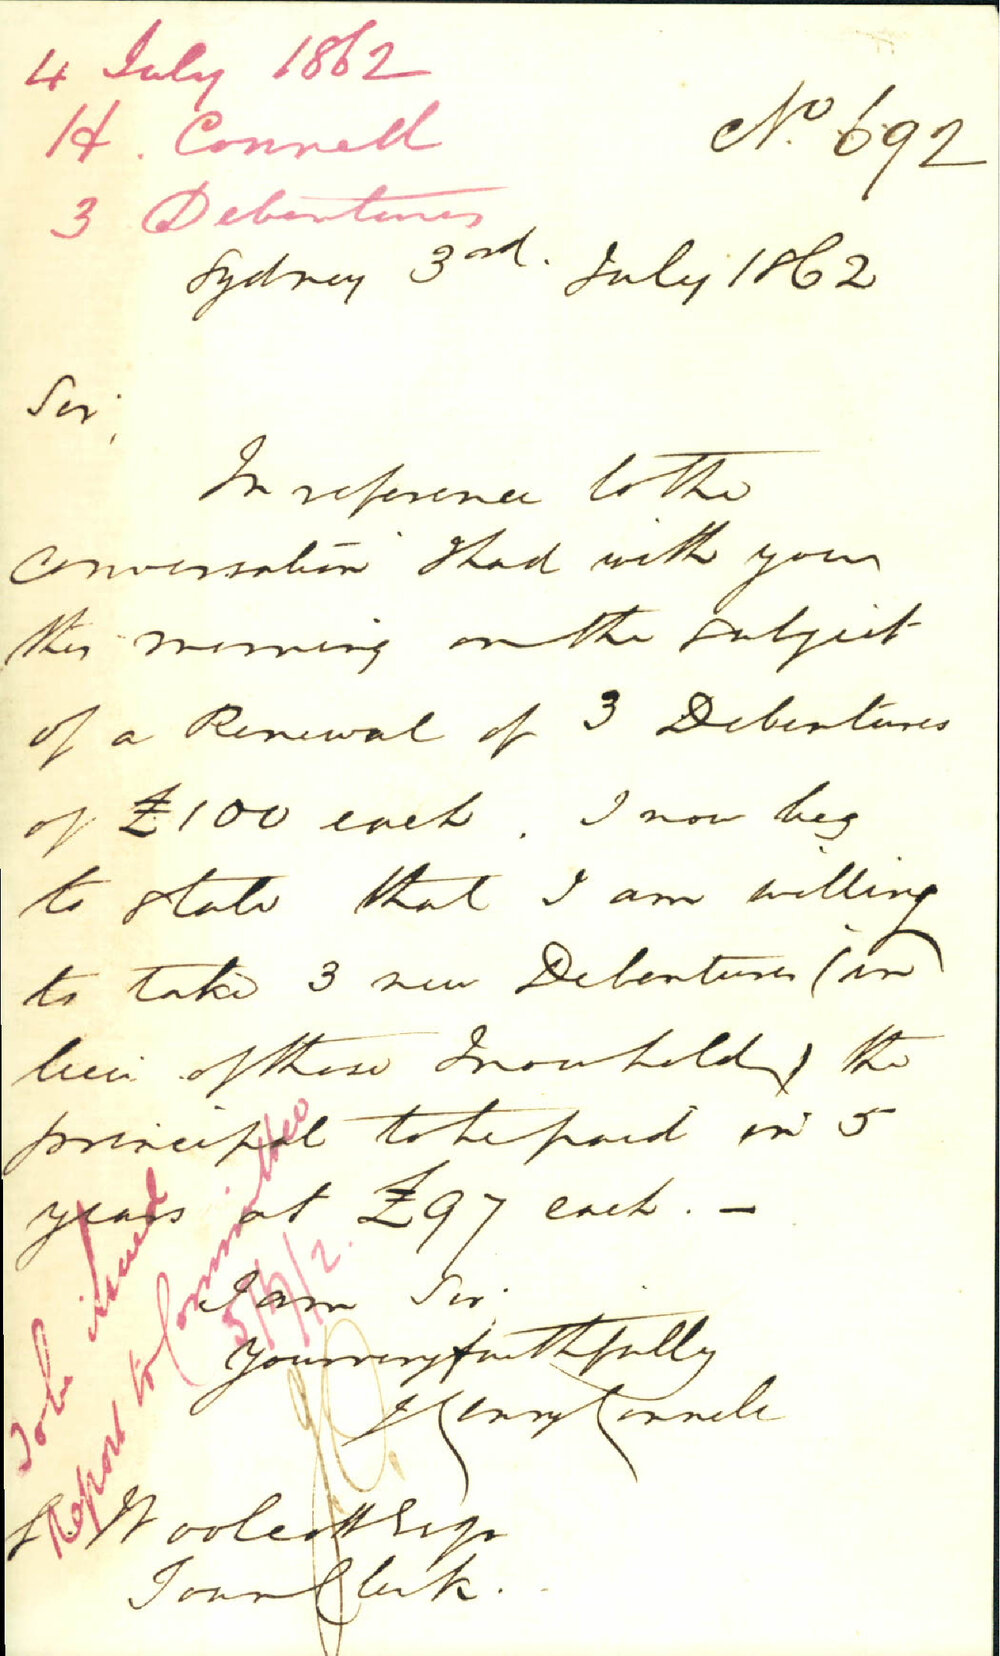 4 July 1862
H. Connell
3 Debentures
No. 692
Sydney 3rd. July 1862
Sir,
In reference to the
conversation I had with you
this morning on the subject
of a Renewal of 3 Debentures
of £100 each. I now beg
to state that I am willing
to take 3 new Debentures (in
lieu of those I now hold) the
principal to be paid in 5
years at £97 each. —
I am Sir
Your very faithfully
Henry Connell
Woolcott Esqr
Town Clerk.
To be issued
Report to Committee
5/7/2.